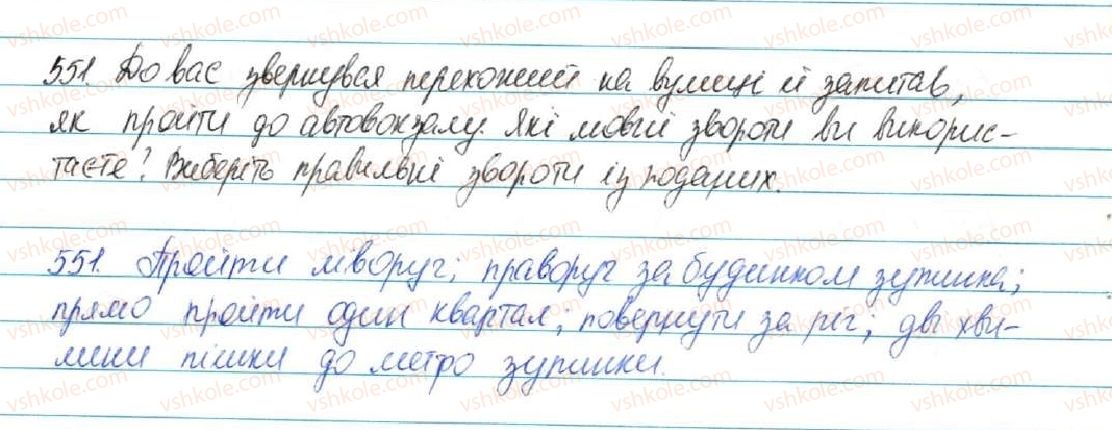 551. До вас звернувся перехожий на вулиці й запитав,
як пройти до автовокзалу. Які мовні звороти ви викорис-
таєте? Виберіть правильні звороти із поданих.
551. Пройти ліворуч; праворуч за будинком зупинка;
прямо пройти один квартал; повернути за ріг; дві хви-
лини пішки до метро зупинки.